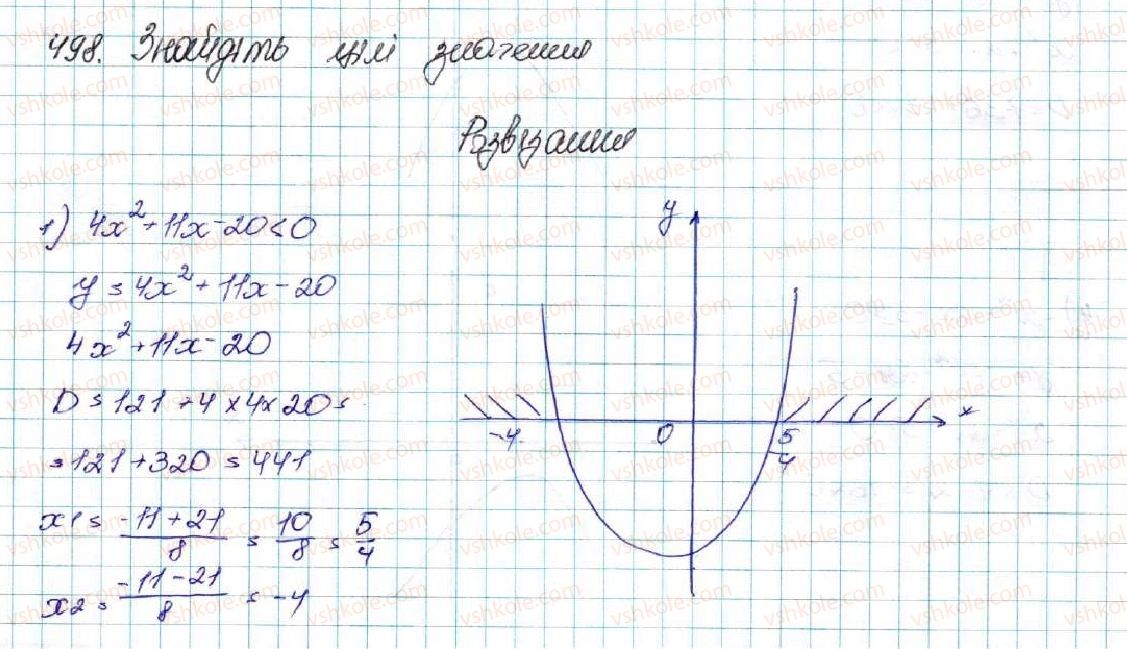 498. Знайдіть цілі значення
Розв'язання
1) 4x² + 11x - 20 < 0
y = 4x² + 11x - 20
4x² + 11x - 20
D = 121 + 4 × 4 × 20 =
= 121 + 320 = 441
x1 = (-11 + 21)/8 = 10/8 = 5/4
x2 = (-11 - 21)/8 = -4
y
-4 0 5/4 x
vshkole.com